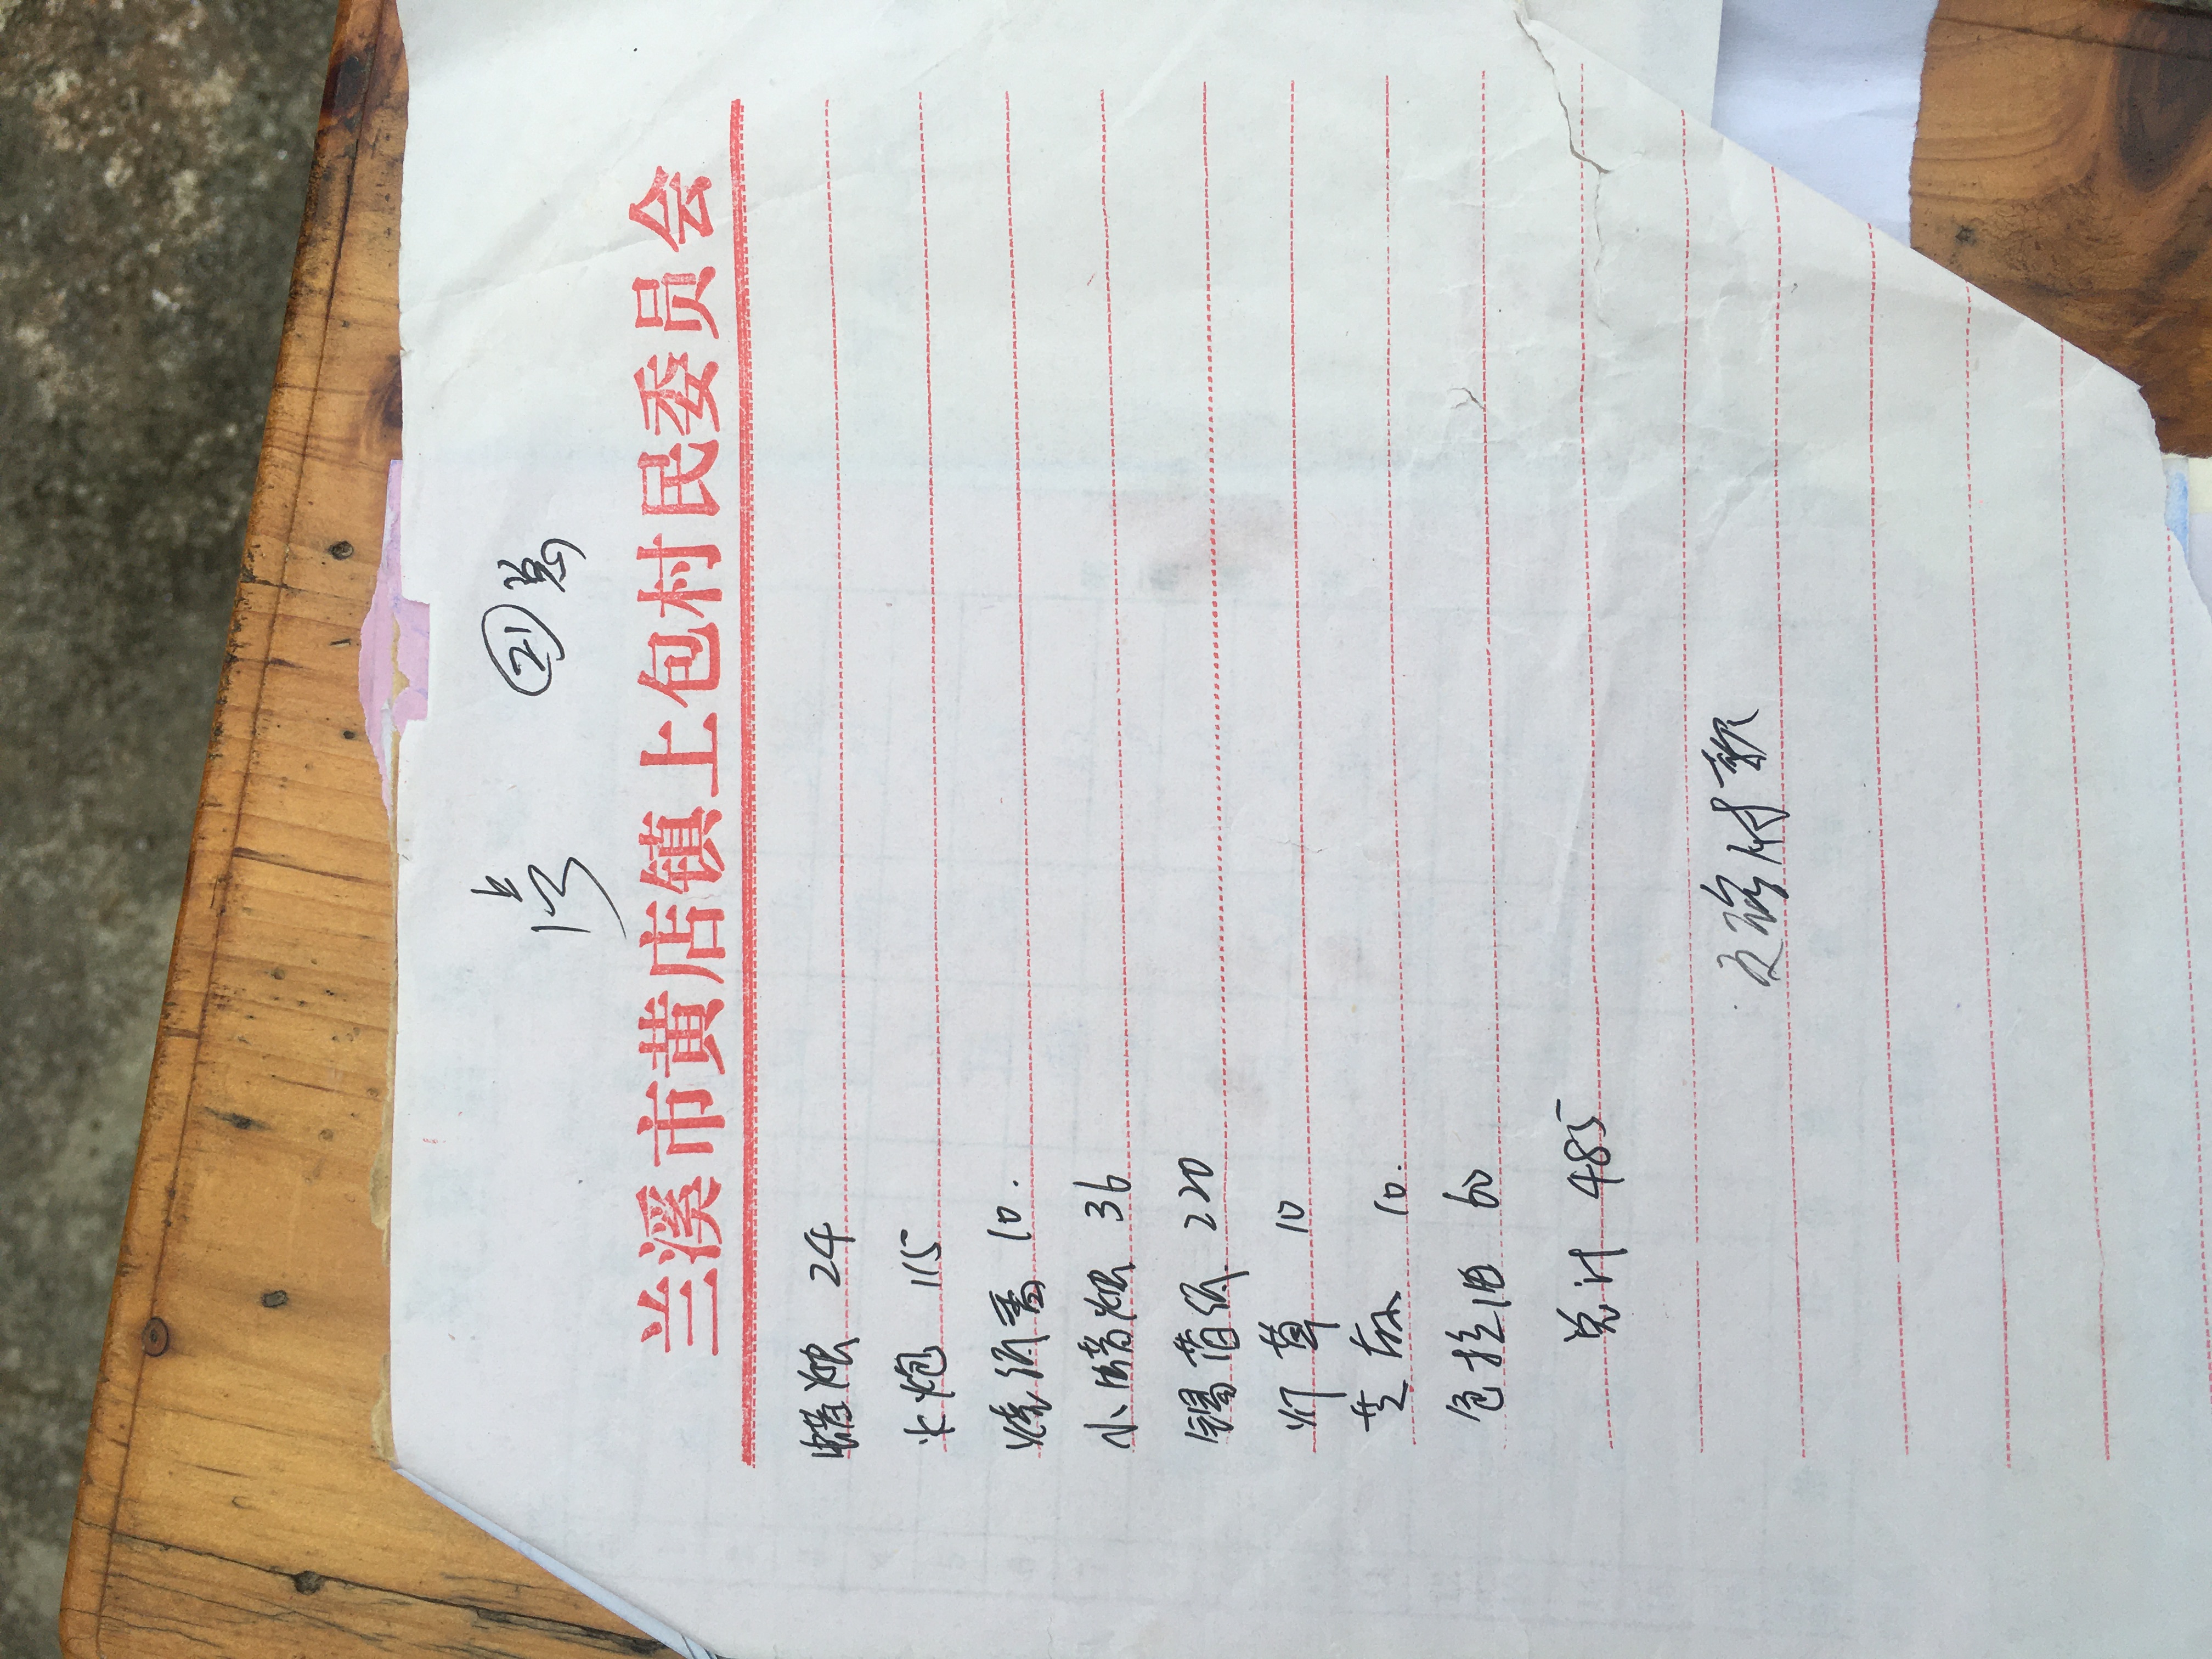 ㉑总
兰溪市黄店镇上包村民委员会
蜡烛 24
火炮 115
烧纸香 10.
小蜡烛 36
锡箔纸 220
灯草 10
芝麻 10.
色拉油 60
总计 485
付款